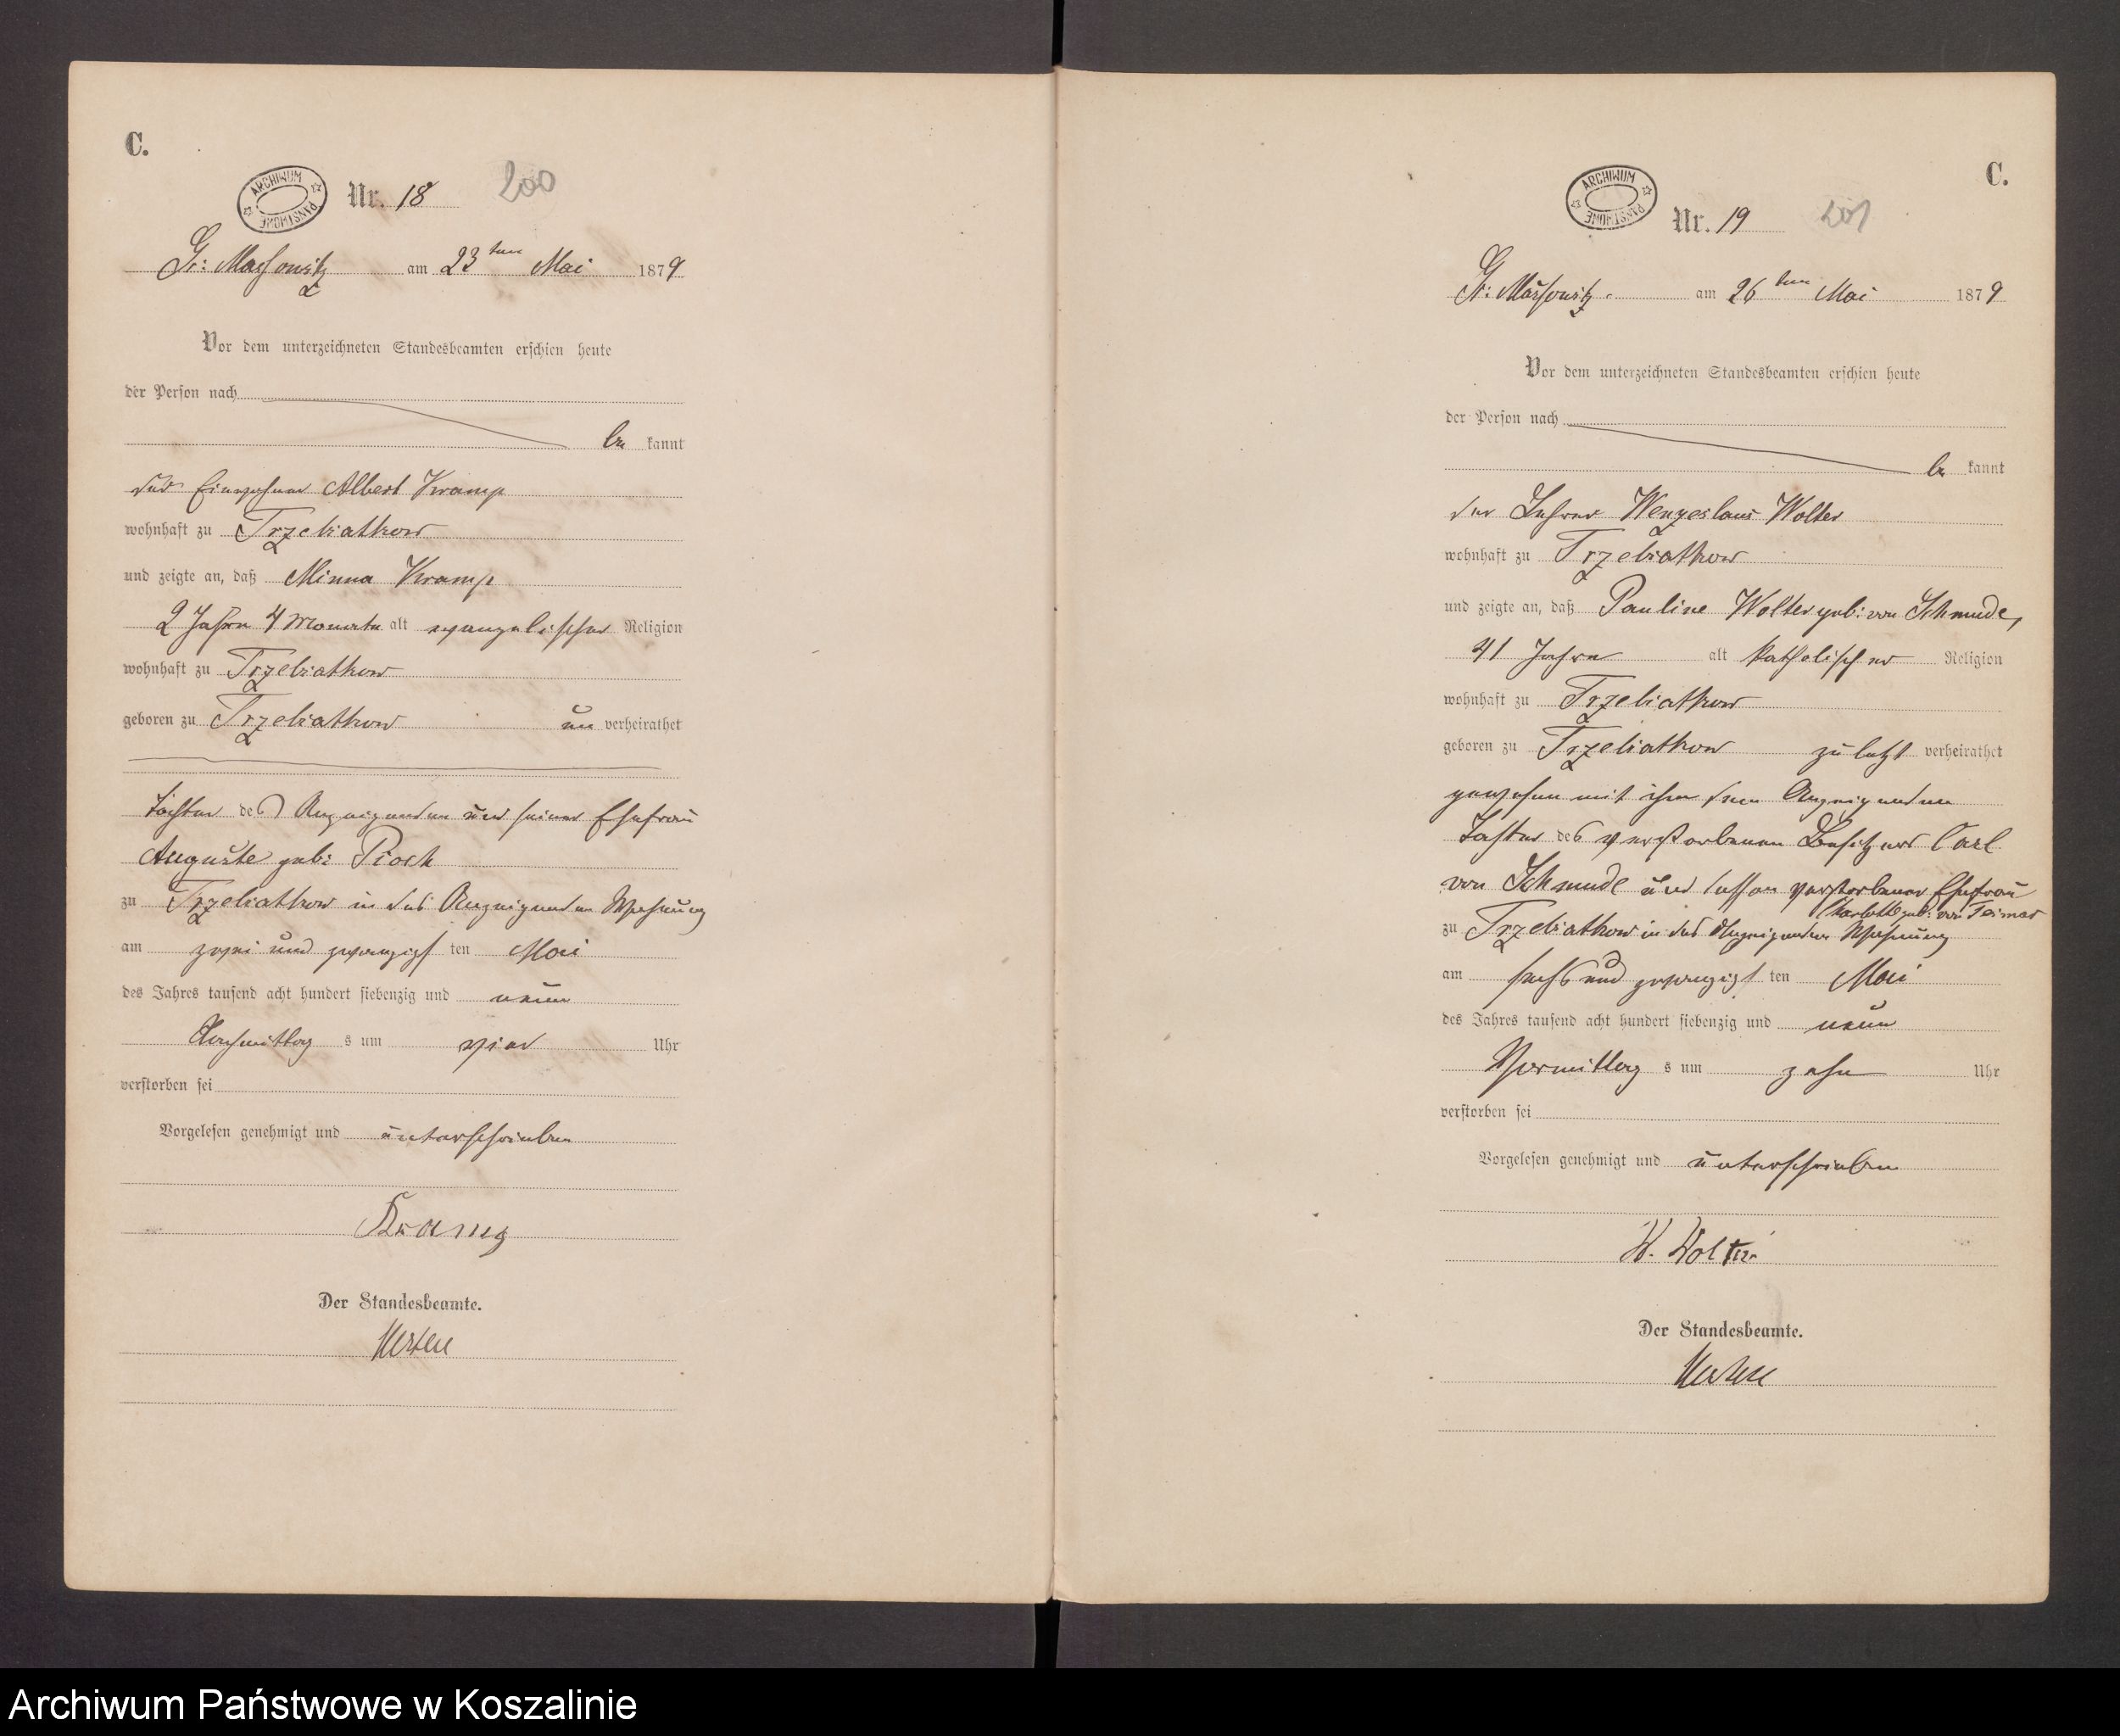 C.
ARCHIWUM PAŃSTWOWE
Nr. 18
200
Gr: Massowitz am 23ten Mai 1879
Vor dem unterzeichneten Standesbeamten erschien heute
der Person nach
be kannt
der Einwohner Albert Kramp
wohnhaft zu Trzebiatkow
und zeigte an, daß Minna Kramp
2 Jahre 4 Monate alt evangelischer Religion
wohnhaft zu Trzebiatkow
geboren zu Trzebiatkow un verheirathet
Tochter des Anzeigenden und seiner Ehefrau
Auguste geb: Pioch
zu Trzebiatkow in des Anzeigenden Wohnung
am zwei und zwanzigs ten Mai
des Jahres tausend acht hundert siebenzig und neun
Nachmittag s um vier Uhr
verstorben sei
Vorgelesen genehmigt und unterschrieben
Kramp
Der Standesbeamte.
C.
ARCHIWUM PAŃSTWOWE
Nr. 19
201
Gr: Massowitz am 26ten Mai 1879
Vor dem unterzeichneten Standesbeamten erschien heute
der Person nach
be kannt
der Lehrer Wenzeslaus Wolter
wohnhaft zu Trzebiatkow
und zeigte an, daß Pauline Wolter geb: von Schmude,
41 Jahre alt katholischer Religion
wohnhaft zu Trzebiatkow
geboren zu Trzebiatkow zuletzt verheirathet
gewesen mit ihm dem Anzeigenden
Tochter des verstorbenen Besitzers Carl
von Schmude und dessen verstorbener Ehefrau
Charlotte geb: von
zu Trzebiatkow in des Anzeigenden Wohnung
am sechs und zwanzigs ten Mai
des Jahres tausend acht hundert siebenzig und neun
Vormittag s um zehn Uhr
verstorben sei
Vorgelesen genehmigt und unterschrieben
W. Wolter
Der Standesbeamte.
Archiwum Państwowe w Koszalinie